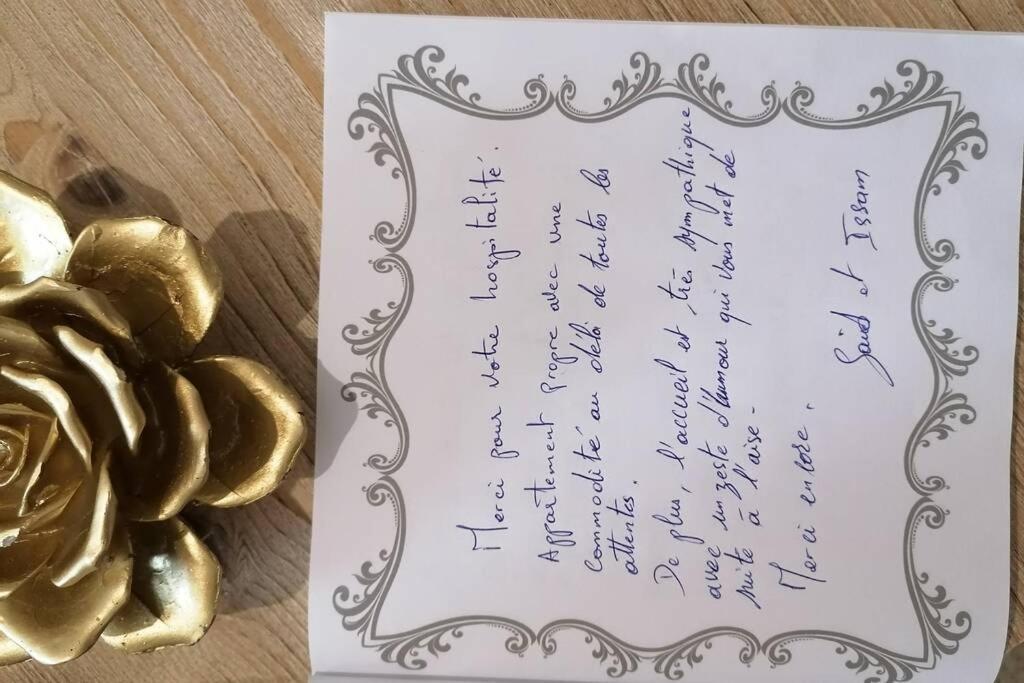 Merci pour votre hospitalité.
Appartement propre avec une
commodité au délai de toutes les
attentes.
De plus, l'accueil est très sympathique
avec un zeste d'humour qui vous met de
suite à l'aise.
Merci encore.
Said et Issam